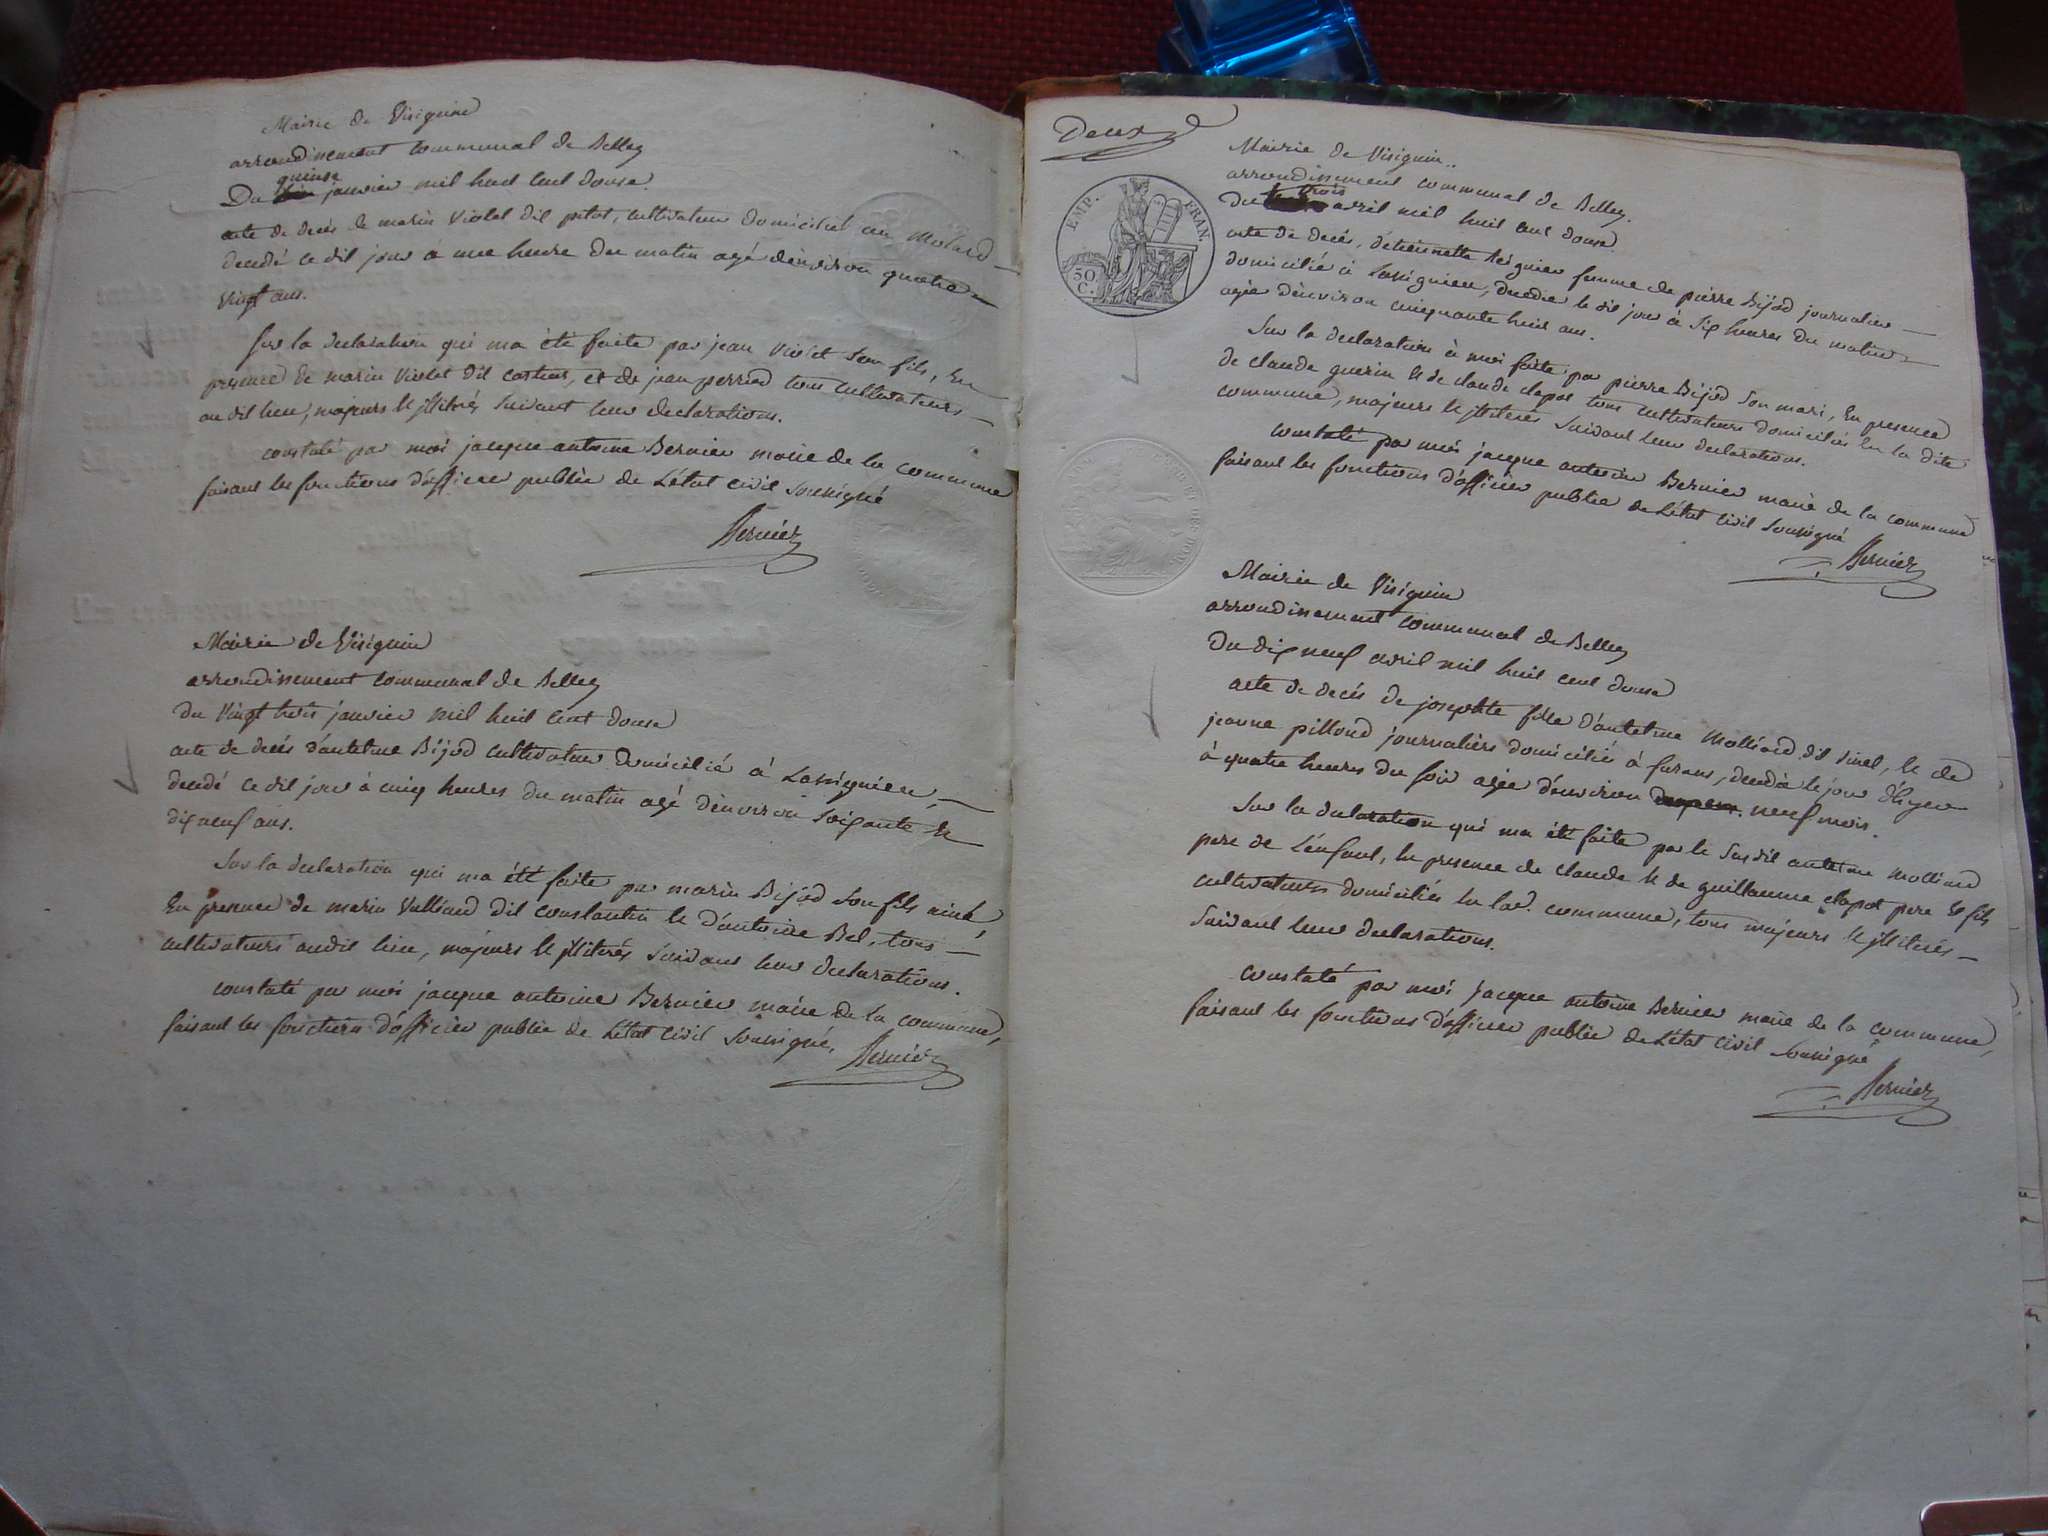 Mairie de Visignin
arrondissement communal de Belley
quinse
Du janvier mil huit cent douse.
acte de decés de marin Violet dit petot, cultivateur domicilié au Molard
decedé ce dit jour à une heure du matin agé d'environ quatre
vingt ans.
Sur la declaration qui ma été faite par jean Violet son fils, En
presence de marin Violet dit , et de jean perrod tous cultivateurs
au dit lieu, majeurs & jllitérés suivant leur declarations.
constaté par moi jacque antoine Bernier maire de la commune
faisant les fonctions d'officier public de L'état civil soussigné
Bernier
Mairie de Visignin
arrondissement communal de Belley
du vingt trois janvier mil huit cent douse
acte de decés d'antelme Bijod cultivateur domicilié à Lassignieu,
decedé ce dit jour à cinq heures du matin agé d'environ soixante &
dix neuf ans.
Sur la declaration qui ma été faite par marin Bijod son fils ainé,
En presence de marin Valliend dit constantin & d'antoine Bel, tous
cultivateurs audit lieu, majeurs & jllitérés suivant leur declarations.
constaté par moi jacque antoine Bernier maire de la commune,
faisant les fonctions d'officier public de L'état civil soussigné.
Bernier
Deux
EMP. FRAN.
50 C.
Mairie de Visignin..
arrondissement communal de Belley.
trois
du avril mil huit cent douse
acte de decés, d'étiennette Seignier femme de pierre Bijod journalier
domicilié à Lassignieu, decedée le dit jour à Six heures du matin
agée d'environ cinquante huit ans.
Sur la declaration à moi faite par pierre Bijod son mari, En presence
de claude guerin & de claude clapot tous cultivateurs domiciliés En la dite
commune, majeurs & jllitérés suivant leur declarations.
constaté par moi jacque antoine Bernier maire de la commune
faisant les fonctions d'officier public de L'état civil soussigné
Bernier
Mairie de Visignin
arrondissement communal de Belley
Du dix neuf avril mil huit cent douse
acte de decés de josephte fille d'antelme Molliard dit , & de
jeanne pilloud journaliers domiciliés à furans, decedée le jour d'hyer
à quatre heures du soir agée d'environ neuf mois.
Sur la declaration qui ma été faite par le susdit antelme Molliard
pere de L'enfant, En presence de claude & de guillaume clapot pere & fils
cultivateurs domiciliés En lad. commune, tous majeurs & jllitérés
suivant leur declarations.
constaté par moi jacque antoine Bernier maire de la commune,
faisant les fonctions d'officier public de L'état civil soussigné
Bernier